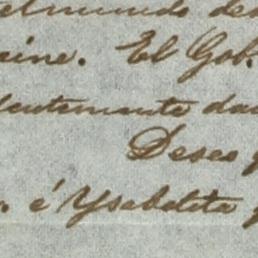 el mundo des
cine. El Gob.
dentemente da
Deseo q
. é Ysabelita y